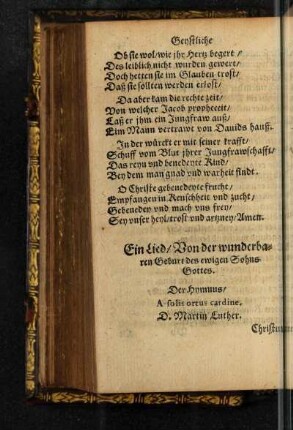 Geystliche
Ob sie wol/ wie jhr Hertz begert/
Des leiblich nicht wurden gewert/
Doch hetten sie im Glauben trost/
Daß sie sollten werden erlost/
Da aber kam die rechte zeit/
Von welcher Jacob propheceit/
Laß er jhm ein Jungfraw auß/
Eim Mann vertrawt von Dauids hauß.
In der würckt er mit seiner krafft/
Schuff vom Blut jhrer Jungfrawschafft/
Das reyn vnd benedeyte Kind/
Bey dem man gnad vnd warheit findt.
O Christe gebenedeyte frucht/
Empfangen in Keuschheit vnd zucht/
Gebenedey vnd mach vns frey/
Sey vnser heyl/ trost vnd artzney/ Amen.
Ein Lied/ Von der wunderba-
ren Geburt des ewigen Sohns
Gottes.
Der Hymnus/
A solis ortus cardine.
D. Martin Luther.